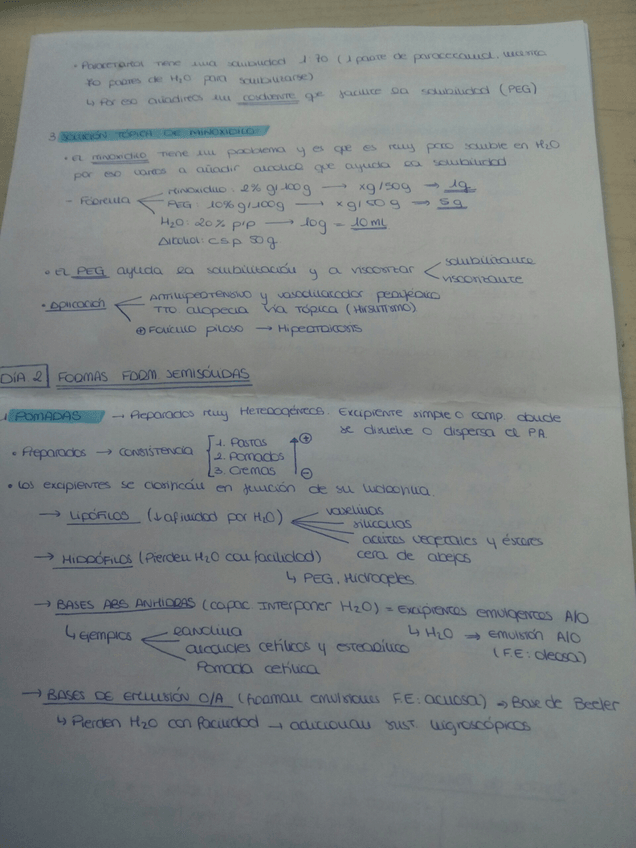 • Paracetamol tiene una solubilidad 1/70 (1 parte de paracetamol
70 partes de H2O para solubilizarse)
↳ Por eso añadimos un cosolvente que facilite la solubilidad (PEG)
3 SOLUCIÓN TÓPICA DE MINOXIDILO:
• El MINOXIDILO tiene un problema y es que es muy poco soluble en H2O
por eso vamos a añadir alcohol que ayuda la solubilidad
- Fórmula
Minoxidilo: 2% g/100g → xg/50g ⇒ 1g
PEG: 10% g/100g → xg/50g ⇒ 5g
H2O: 20% p/p → 10g = 10ml
Alcohol: csp 50g
• El PEG ayuda la solubilización y a viscosizar
solubilizante
viscosizante
• Aplicación
Antihipertensivo y vasodilatador periférico
TTO alopecia vía tópica (Hirsutismo)
⊕ Folículo piloso → Hipertricosis
DÍA 2 FORMAS FARM SEMISÓLIDAS
1 POMADAS → Preparados muy Heterogéneos. Excipiente simple o comp. donde
se disuelve o dispersa el PA
• Preparados → CONSISTENCIA
1. Pastas ⊕
2. Pomadas
3. Cremas ⊖
• Los excipientes se clasifican en función de su
→ LIPÓFILOS (↓ afinidad por H2O)
vaselinas
siliconas
aceites vegetales y ésteres
cera de abejas
→ HIDRÓFILOS (Pierden H2O con facilidad)
↳ PEG, Hidrogeles
→ BASES ABS ANHIDRAS (capac. INTERPONER H2O) = Excipientes emulgentes A/O
↳ Ejemplos
Lanolina
alcoholes cetílicos y estearílico
Pomada cetílica
↳ H2O ⇒ emulsión A/O
(F.E: oleosa)
→ BASES DE EMULSIÓN O/A (Forman emulsiones F.E: acuosa) ⇒ Base de Beeler
↳ Pierden H2O con facilidad → adicionan sust. higroscópicas